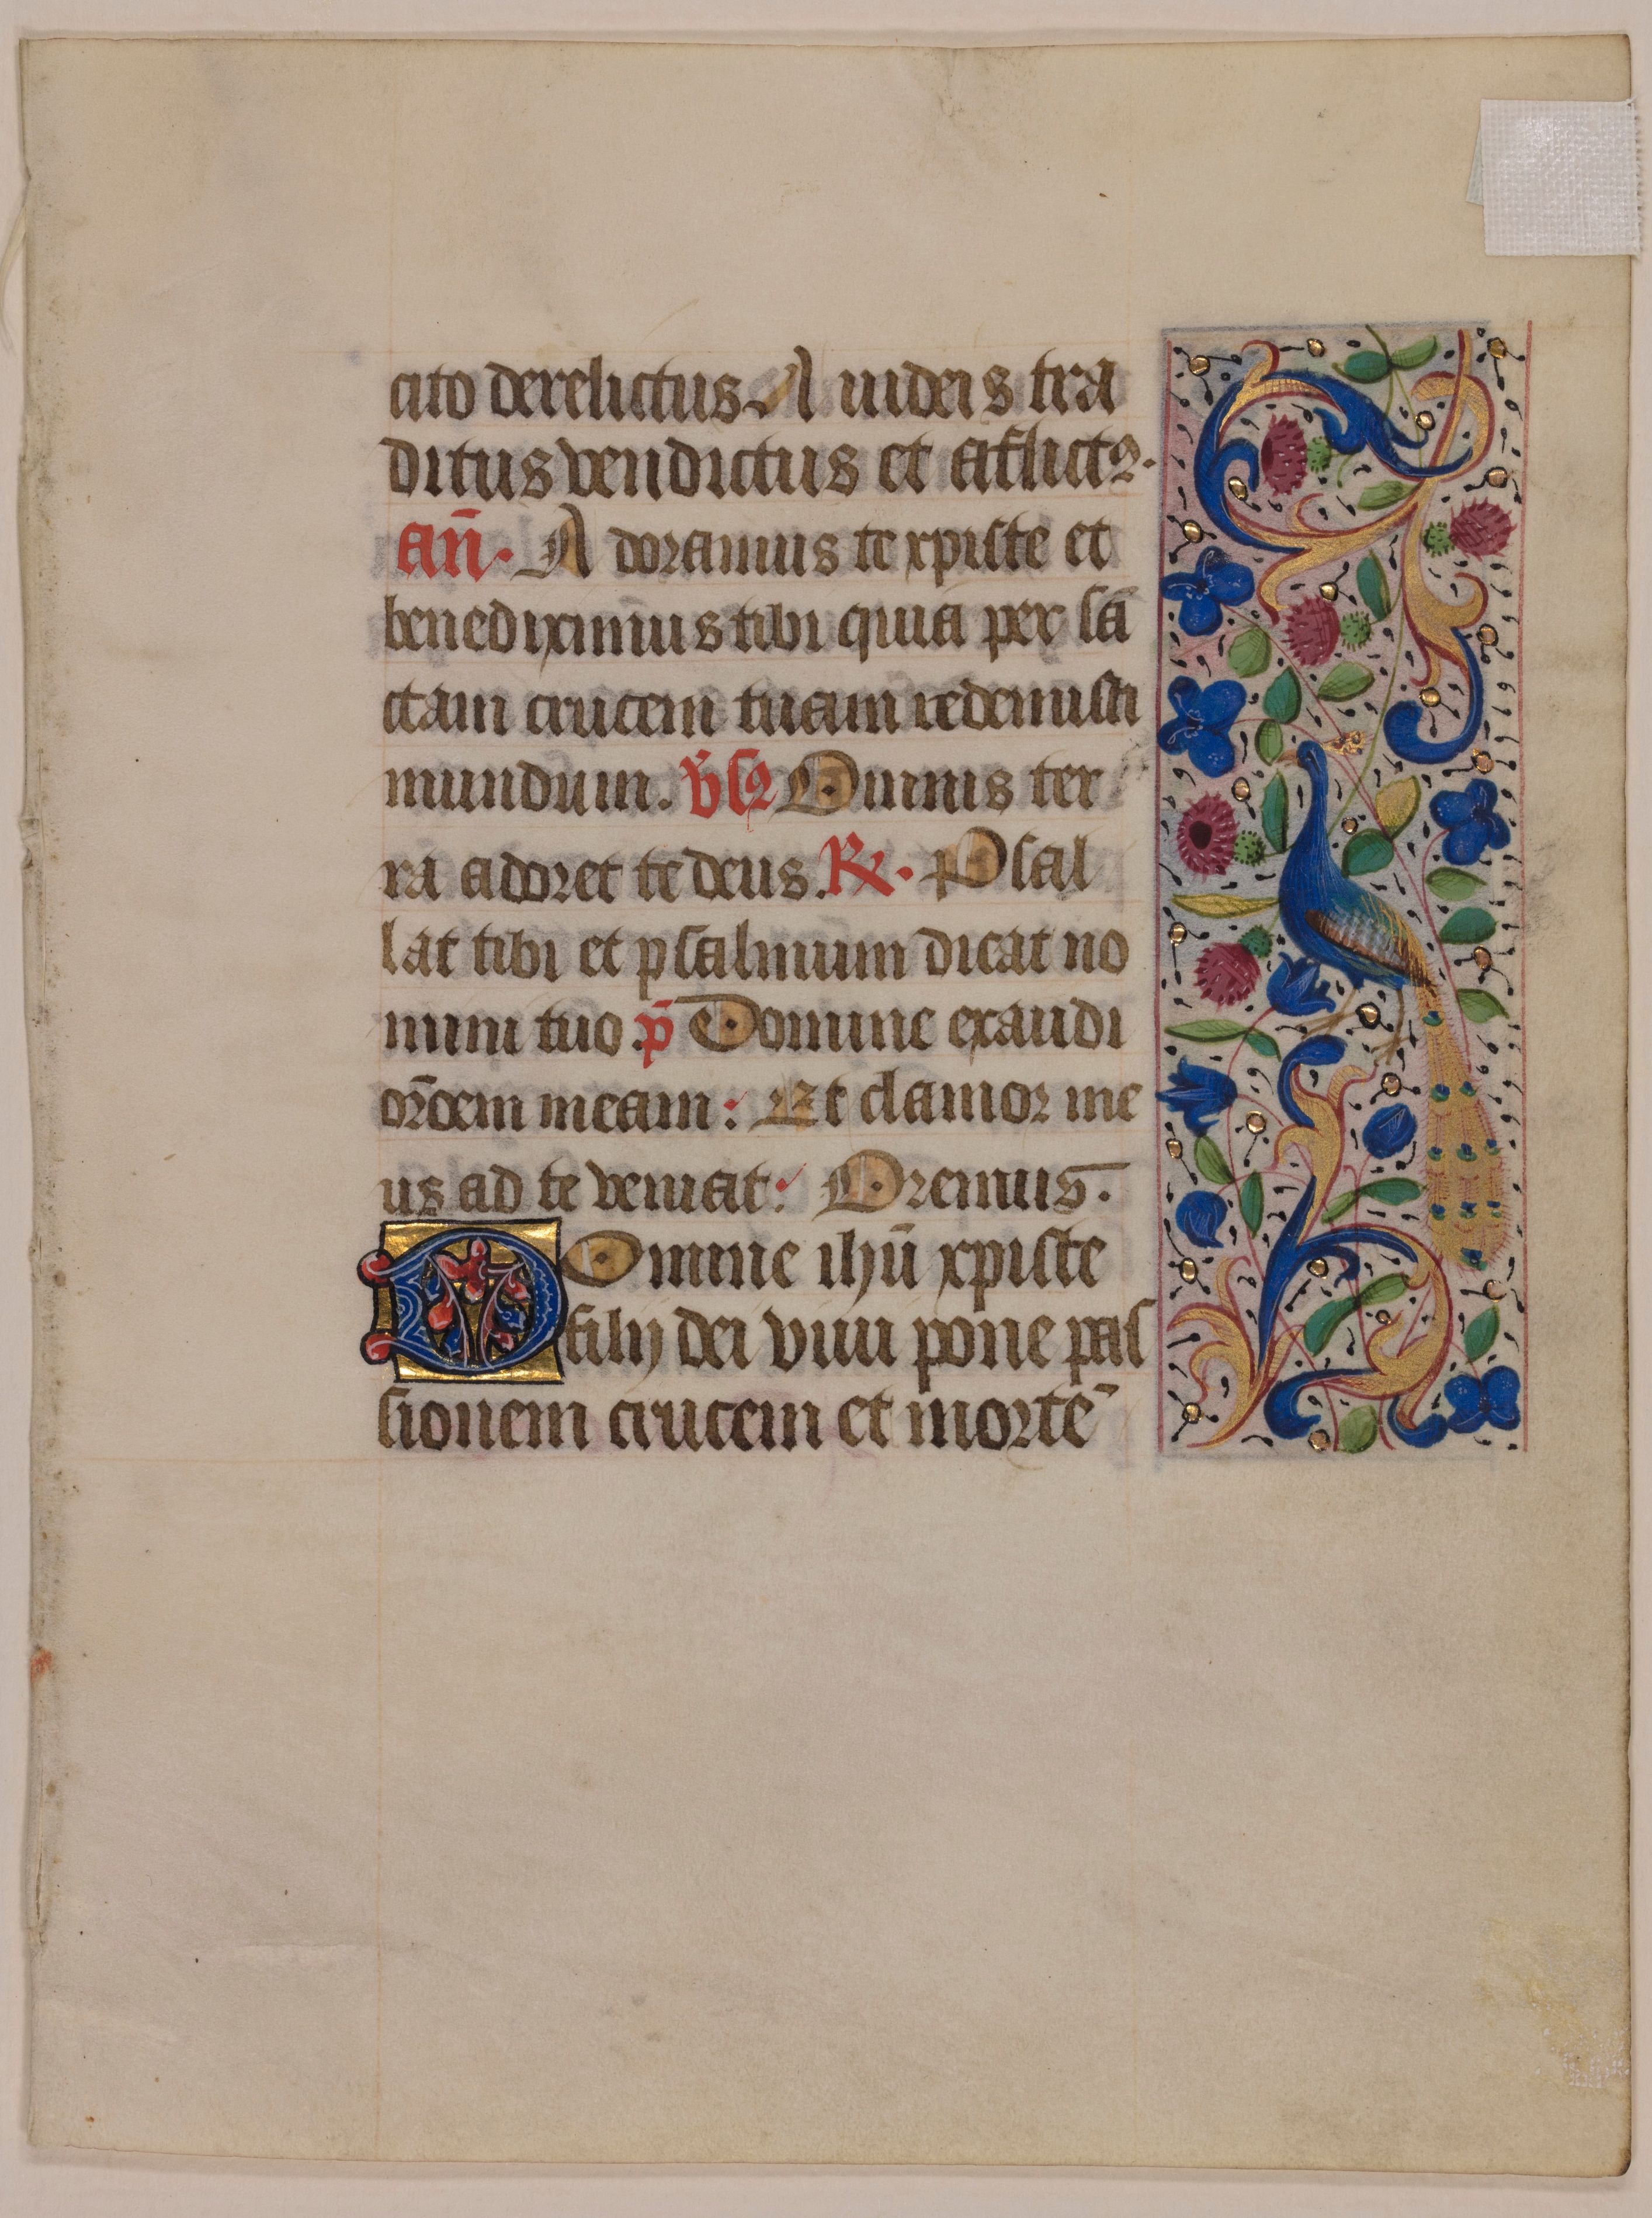 cito derelictus A iudeis tra
ditus vendictus et aflictꝰ.
an̄. A doramus te xpiste et
benediximus tibi quia per sā
ctam crucem tuam redemisti
mundum. v̄sꝰ Omnis ter
ra adoret te deus. ℟. Psal
lat tibi et psalmum dicat no
mini tuo. p̄ Domine exaudi
or̄oem meam: Et clamor me
us ad te veniat: Oremus.
DOmine ihū xpiste
filij dei viui pone pas
sionem crucem et mortē